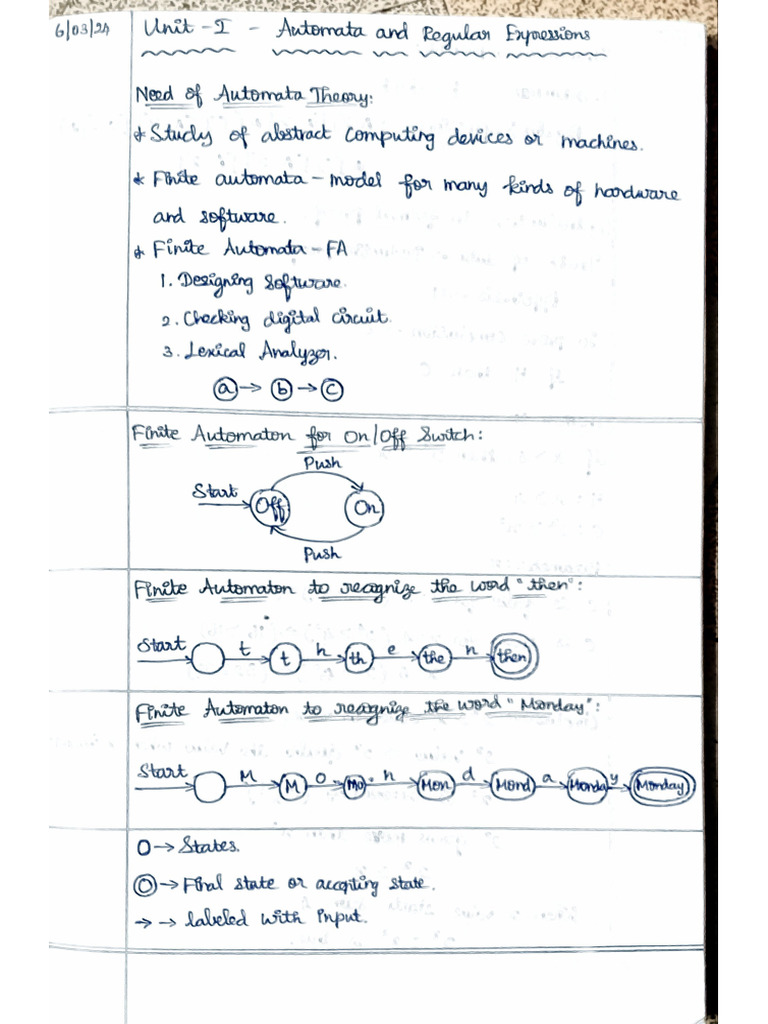 6/03/24
Unit - I - Automata and Regular Expressions
Need of Automata Theory:
* Study of abstract computing devices or machines.
* Finite automata - model for many kinds of hardware
and software.
* Finite Automata - FA
1. Designing software.
2. Checking digital circuit.
3. Lexical Analyzer.
a → b → c
Finite Automaton for On/Off Switch:
Push
Start Off On
Push
Finite Automaton to recognize the word "then":
Start t t h th e the n then
Finite Automaton to recognize the word "Monday":
Start M M o Mo n Mon d Mond a Monda y Monday
O → States.
◎ → Final state or accepting state.
→ → labeled with input.